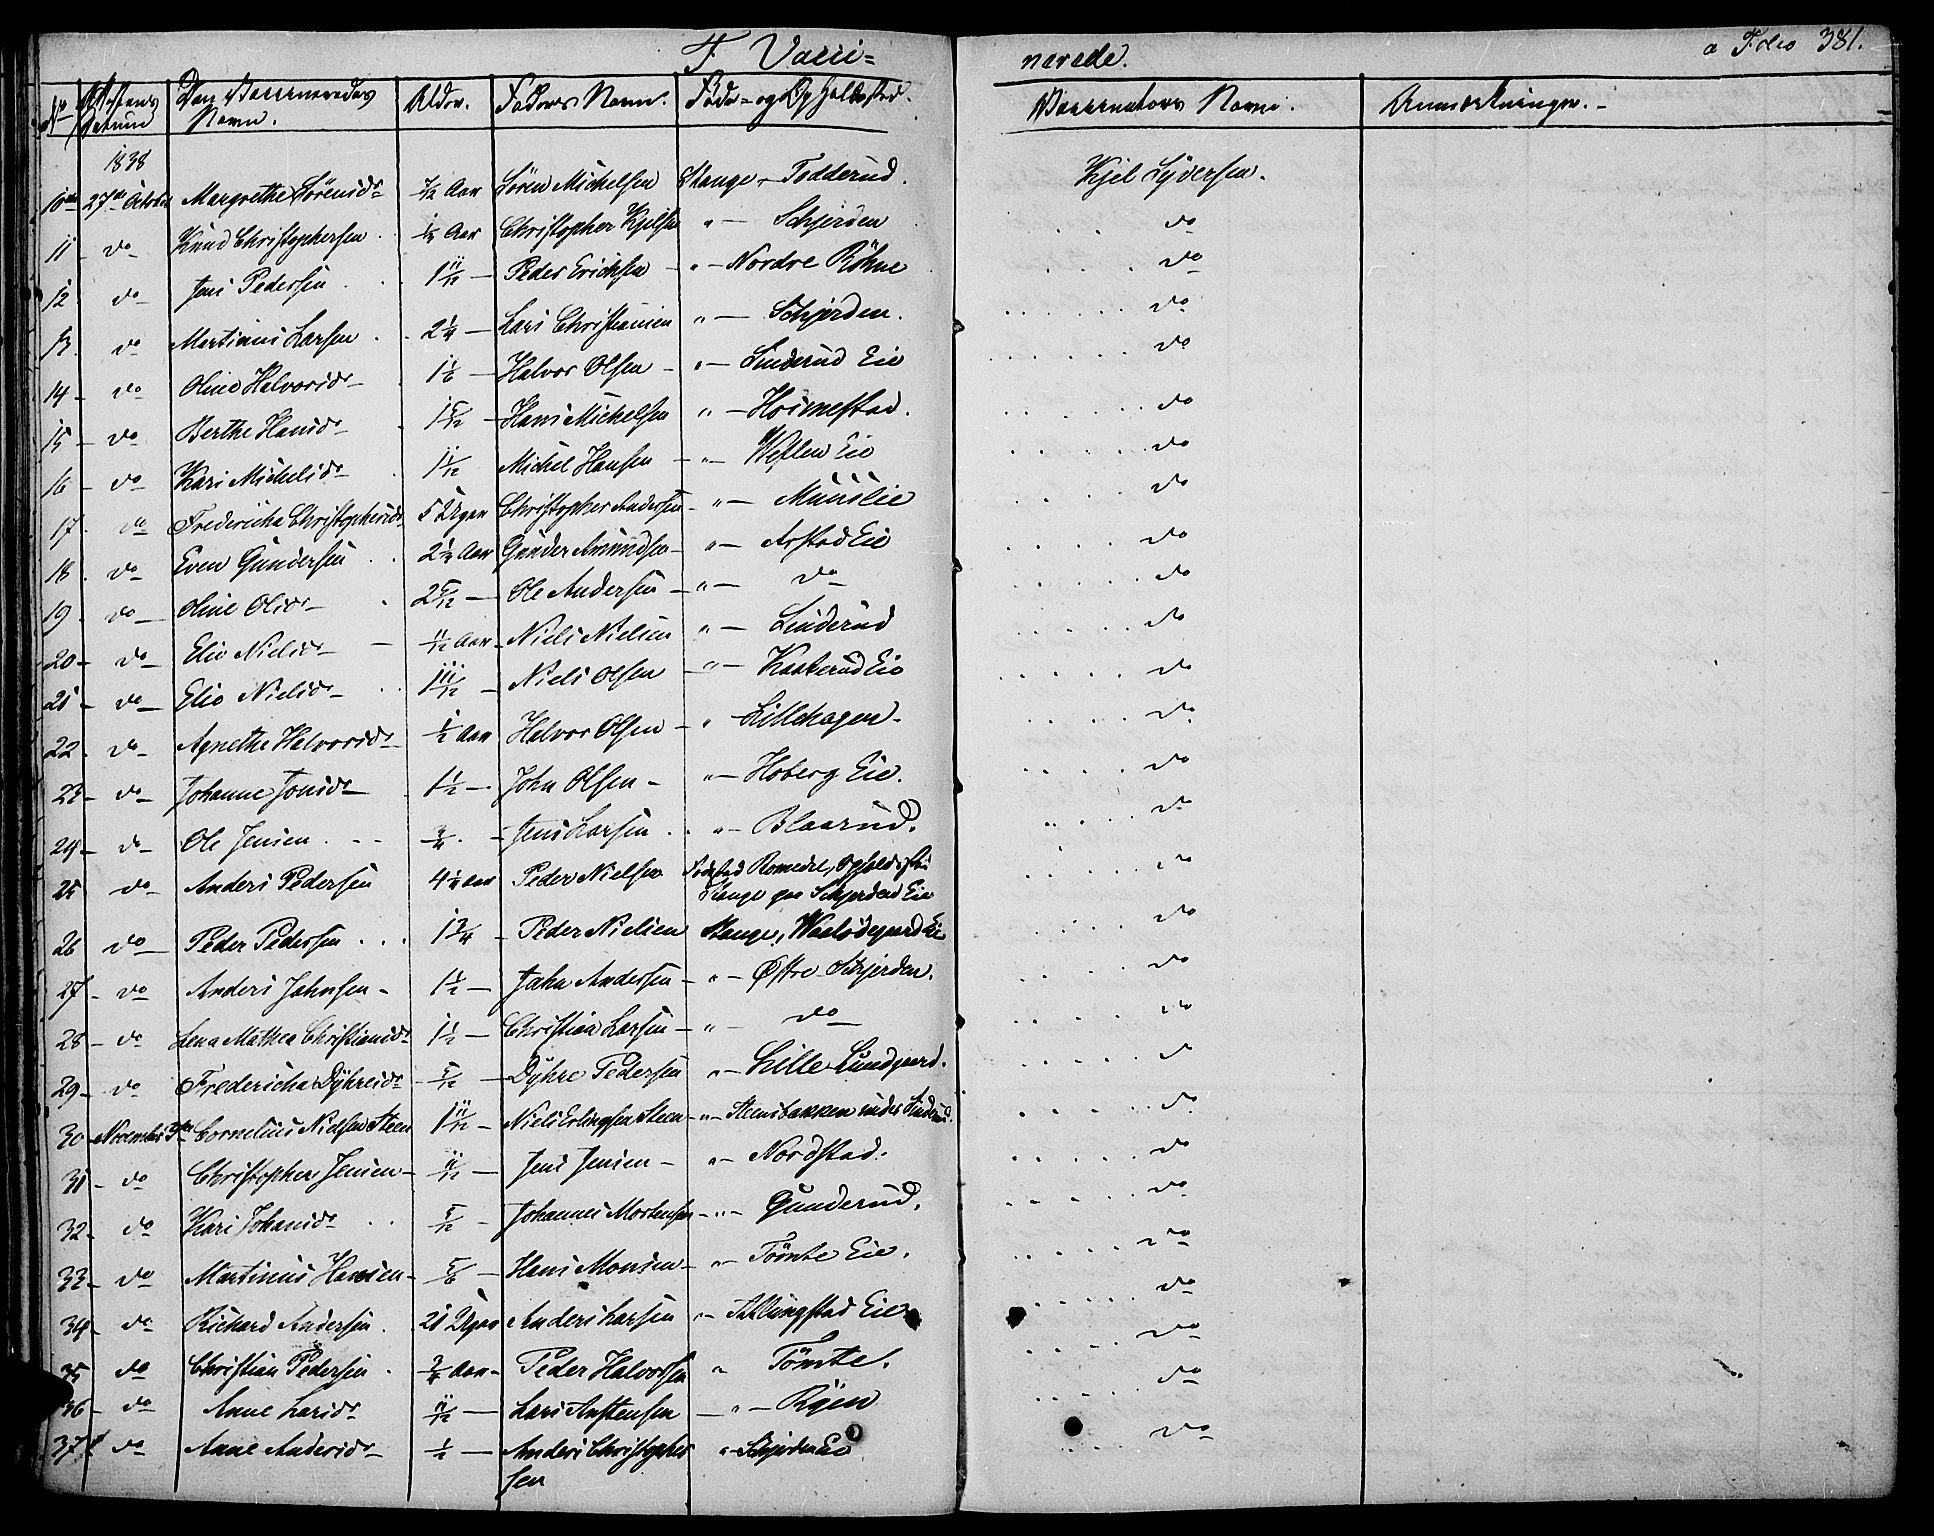 F. Vacci=
nerede.
a Folio 381.
No Attestens Datum Den Vaccineredes Navn. Alder. Faderes Navn. Føde- og Opholdssted. Vaccinateurs Navn. Anmærkninger.
1838
10 27de October Margrethe Sörensdr 7/12 Aar Sören Michelsen Stange - Todderud. Kjel Syversen.
11 do Knud Christophersen ¼ Aar Christopher Kjelsen " - Schjerden do
12 do Jens Pedersen 1 11/12 - Peder Erichsen " - Nordre Röhne do
13. do Martinus Larsen 2¼ - Lars Christiansen " - Schjerden. do
14 - do Oline Halvorsdr 1 1/6 - Halvor Olsen - " - Linderud Eie do
15 - do Berthe Hansdr 1 5/12 - Hans Michelsen " - Hoimestad. do
16 - do Kari Michelsdr 1 1/12 Michel Hansen - " - Westen Eie do
17. do Fredericha Christophersdr 5 Uger Christopher Andersen - " - Muuslie do
18. do Even Gundersen 2½ Aar Gunder Amundsen - " - Arstad Eie do
19. do Oline Olsdr 2 5/12 - Ole Andersen - " - do do
20 - do Elie Nielsdr - 11/12 Aar - Niels Nielsen " - Linderud do
21 - do Elie Nielsdr 1 11/12 - Niels Olsen " - Kaaterud Eie do
22. do Agnethe Halvorsdr ½ Aar Halvor Olsen - " Lillehagen. do
23 - do Johanne Jonsdr 1½ - John Olsen - " - Hoberg Eie. do
24 - do Ole Jensen ¾ - Jens Larsen " - Blaarud. do
25 do Anders Pedersen 4½ Aar Peder Nielsen Födested Romedal, Opholdssted
Stange paa Schjerden Eie do
26 do Peder Pedersen 1¾ - Peder Nielsen Stange, Waalödegaard Eie do
27 - do Anders Johnsen - 1½ - John Andersen - " - Østre Schjerden. do
28 - do Lena Mathea Christiansdr 1½ - Christian Larsen - " - do do
29 - do Fredericha Dyhresdr 5/12 - Dyhre Pedersen " - Lille Sundgaard. do
30 - November 3die Cornelius Nielsen Steen 1 11/12 - Niels Erlingsen Steen - " - Steensbakken under Linderud. do
31 - do Christopher Jensen - 11/12 - Jens Jensen - " - Nordstad. do
32 - do Kari Johansdr 5/12 - Johannes Mortensen - " - Gunderud. do
33 - do Martinus Hansen - 5/6 - Hans Monsen - " - Tömte Eie. do
34 - do Richard Andersen. 21 Uger Anders Larsen " - Tallungstad Eie do
35 do Christian Pedersen. ¾ Aar - Peder Halvorsen " Tömte. do
36 - do Anne Larsdr 11/12 - Lars Anstensen - " - Röen do
37 do Anne Andersdr ½ - Anders Christopher
sen " Schjerden Eie do